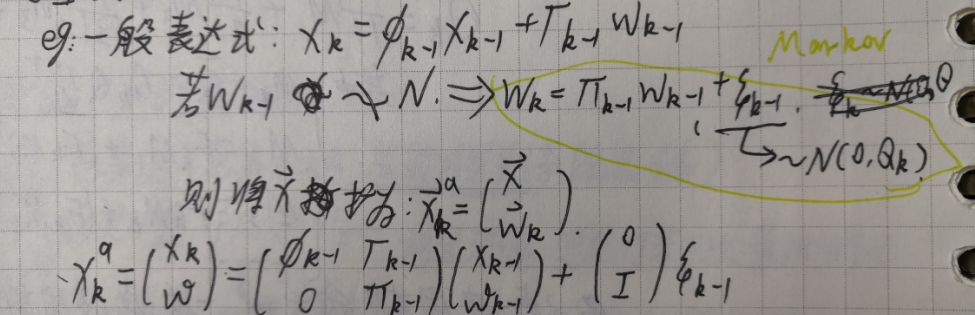 eg:一般表达式: X_k = ϕ_{k-1} X_{k-1} + Γ_{k-1} W_{k-1}
Markov
若 W_{k-1} ≁ N. ⇒ W_k = Π_{k-1} W_{k-1} + ξ_{k-1}.
→ ~N(0, Q_k)
则将 \vec{X} 扩为: \vec{X}_k^a = (\vec{X} \vec{W}_k).
X_k^a = (X_k W) = (ϕ_{k-1} Γ_{k-1} 0 Π_{k-1}) (X_{k-1} W_{k-1}) + (0 I) ξ_{k-1}